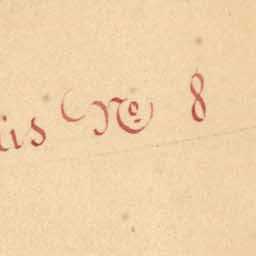 is № 8